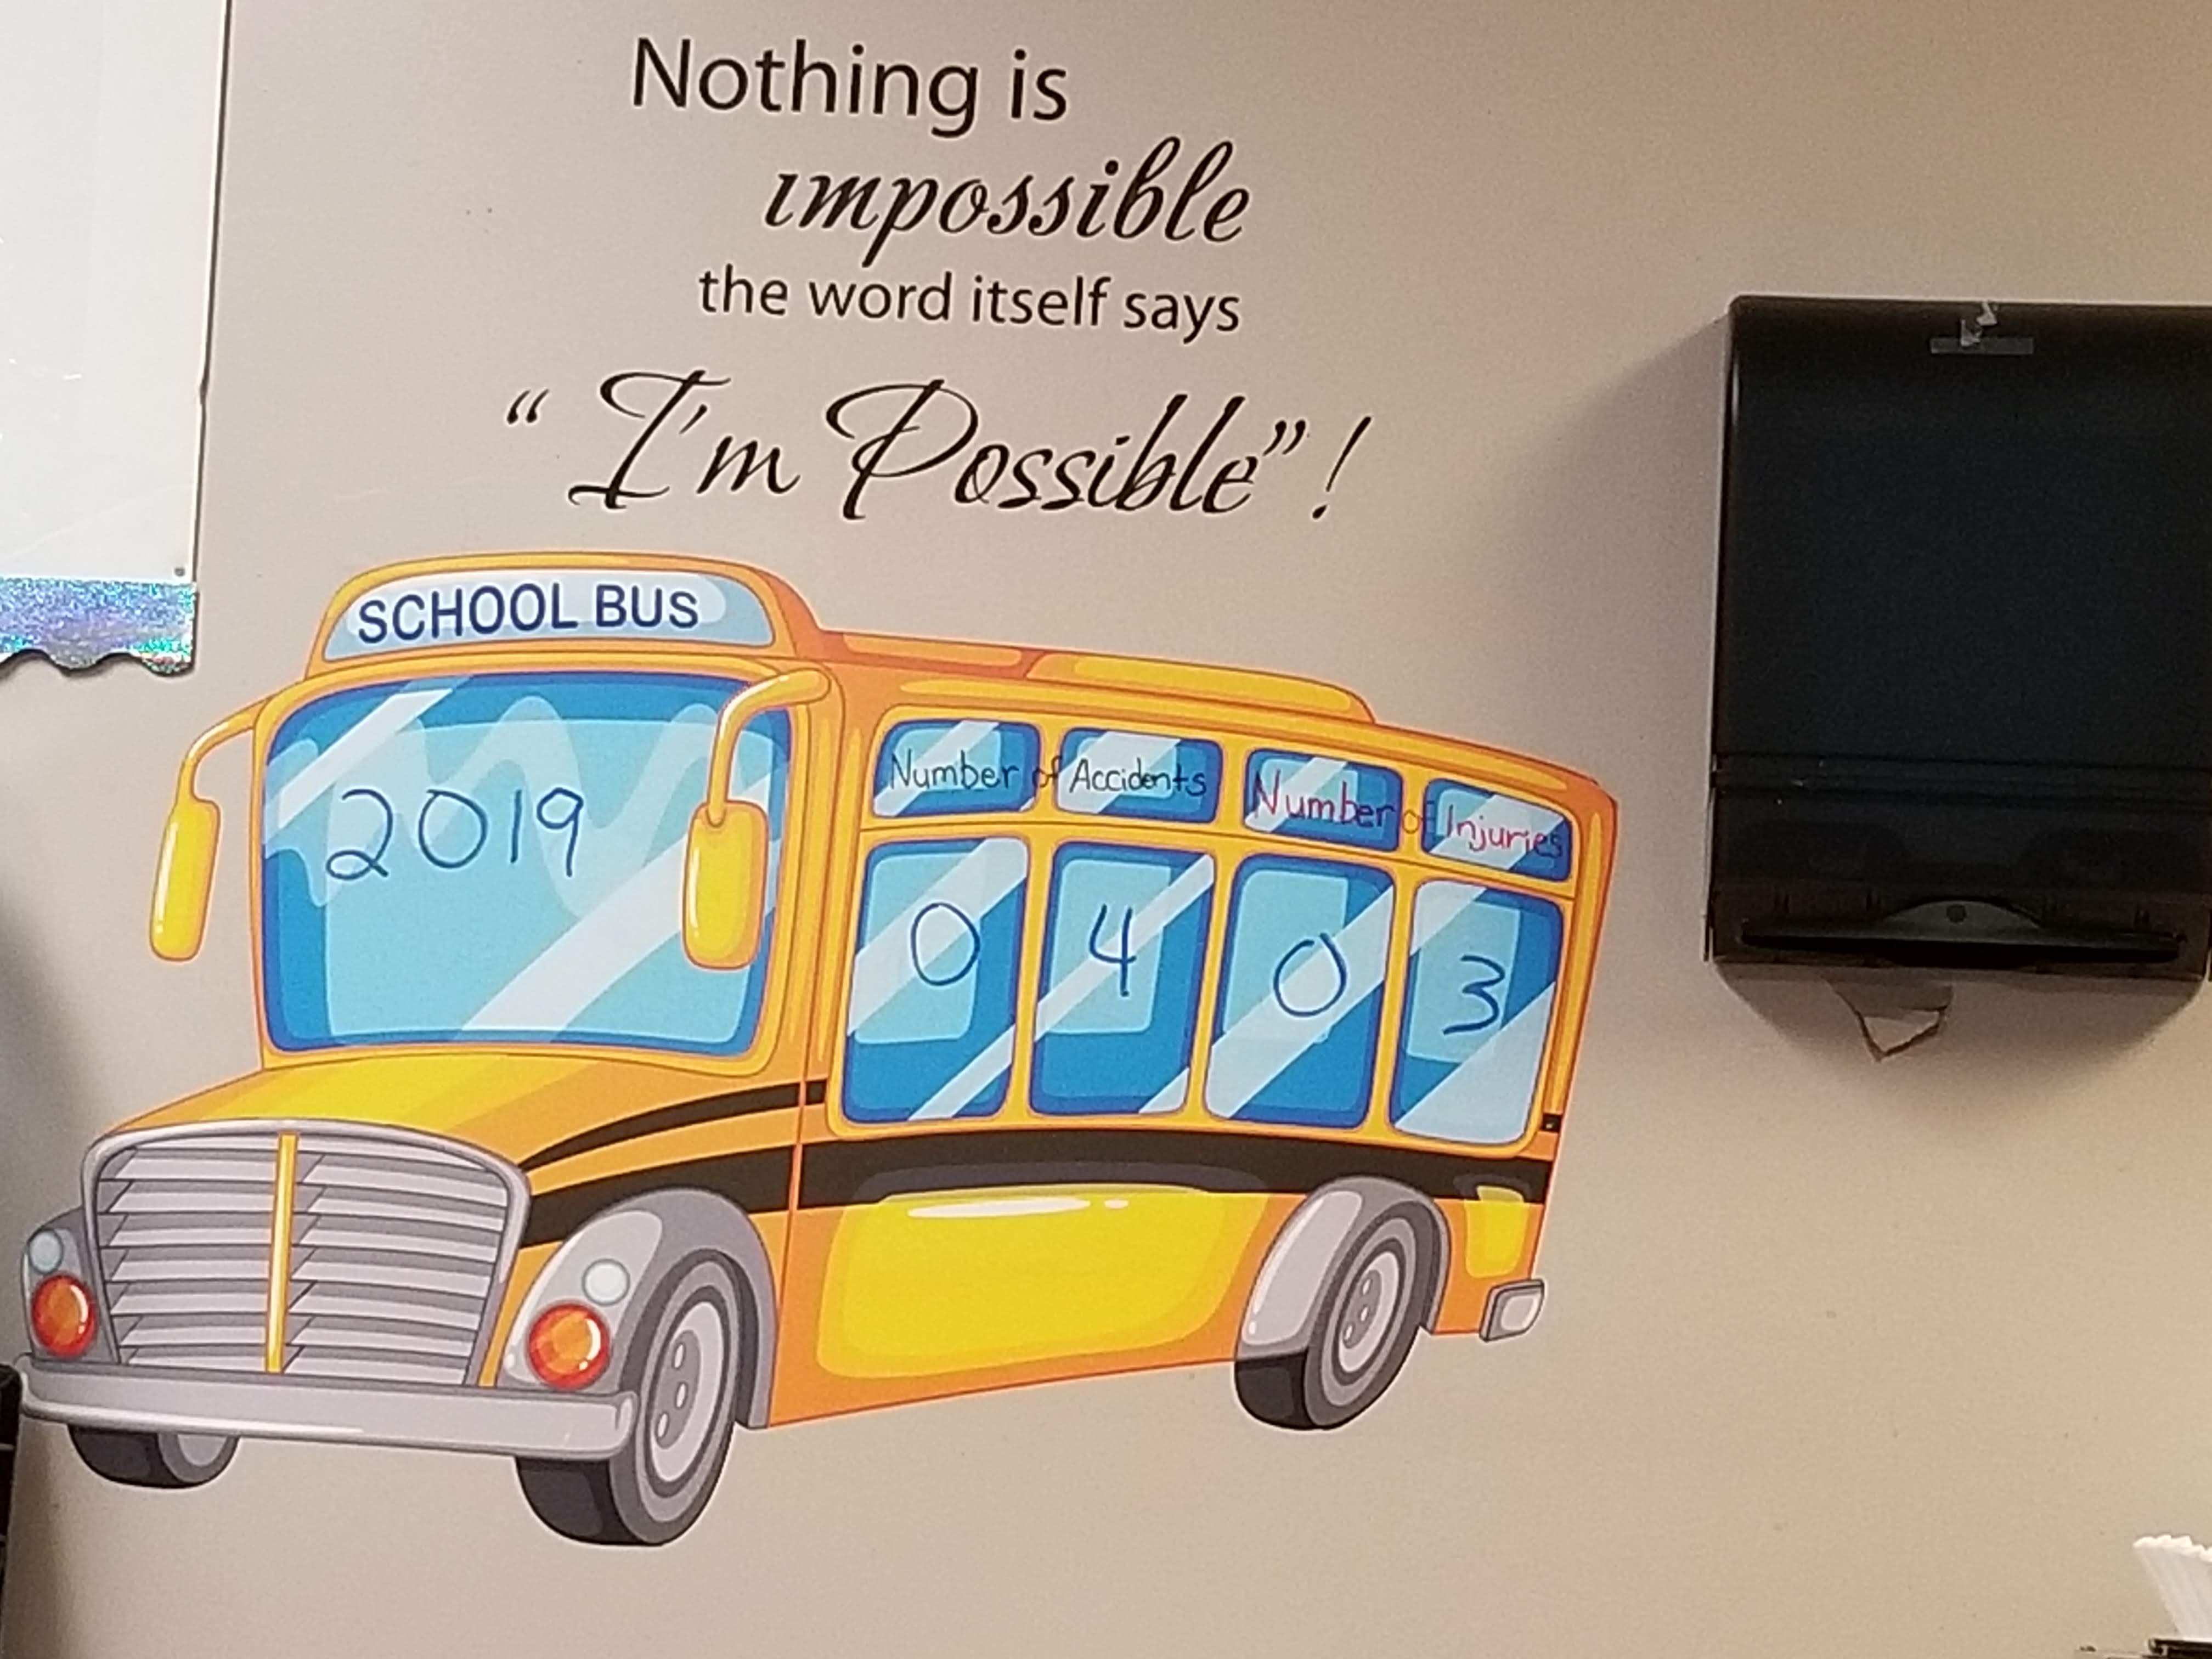 Nothing is
impossible
the word itself says
“I'm Possible”!
SCHOOL BUS
2019
Number of Accidents
Number of Injuries
0 4 0 3